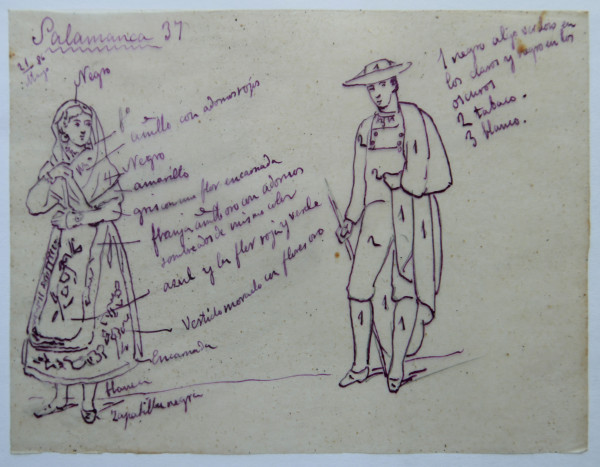 Salamanca 37
Negro
amarillo con adornos rojos
Negro
amarillo
gris con una flor encarnada
franja con adornos
sombreados de mismo color
azul y la flor roja y verde
Vestido morado con flores
Encarnada
blanca
Zapatillas negra
1 negro algo en
los claros y negro en los
oscuros
2 tabaco.
3 blanco.
1
1
1
1
1
1
1
2
2
2
3